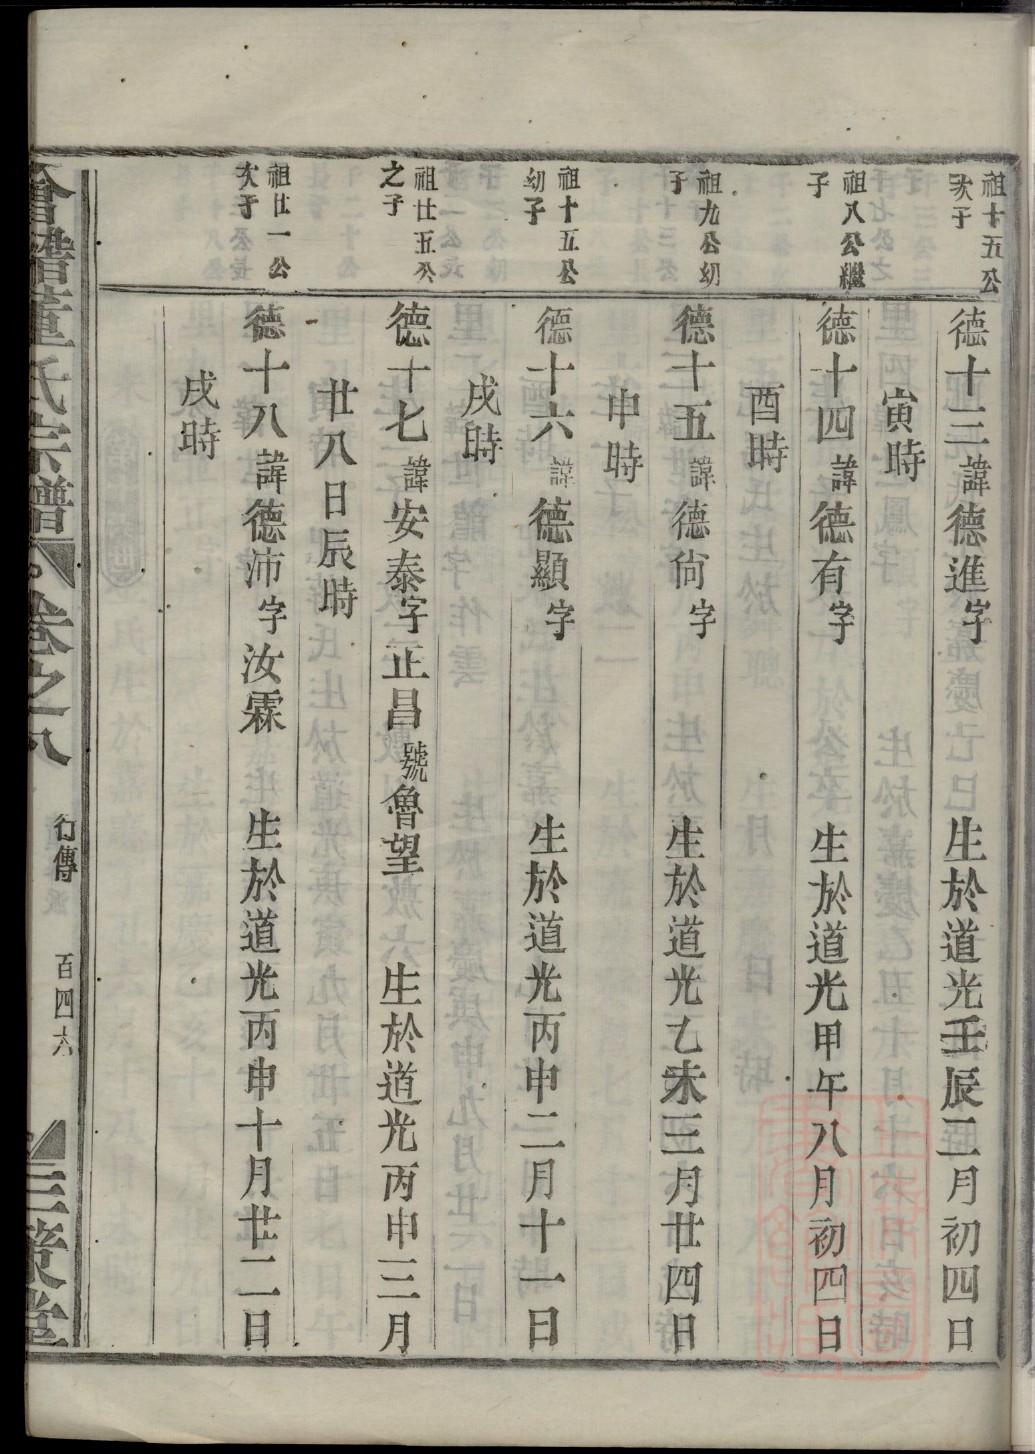 祖十五公
次子
德十三諱德進字　生於道光壬辰三月初四日
寅時
祖八公繼
子
德十四諱德有字　生於道光甲午八月初四日
酉時
祖九公幼
子
德十五諱德尙字　生於道光乙未三月廿四日
申時
祖十五公
幼子
德十六諱德顯字　生於道光丙申二月十一日
戌時
祖廿五公
之子
德十七諱安泰字正昌號魯望　生於道光丙申三月
廿八日辰時
祖廿一公
次子
德十八諱德沛字汝霖　生於道光丙申十月廿二日
戌時
會稽董氏宗譜　卷之八　行傳　百四六　三策堂